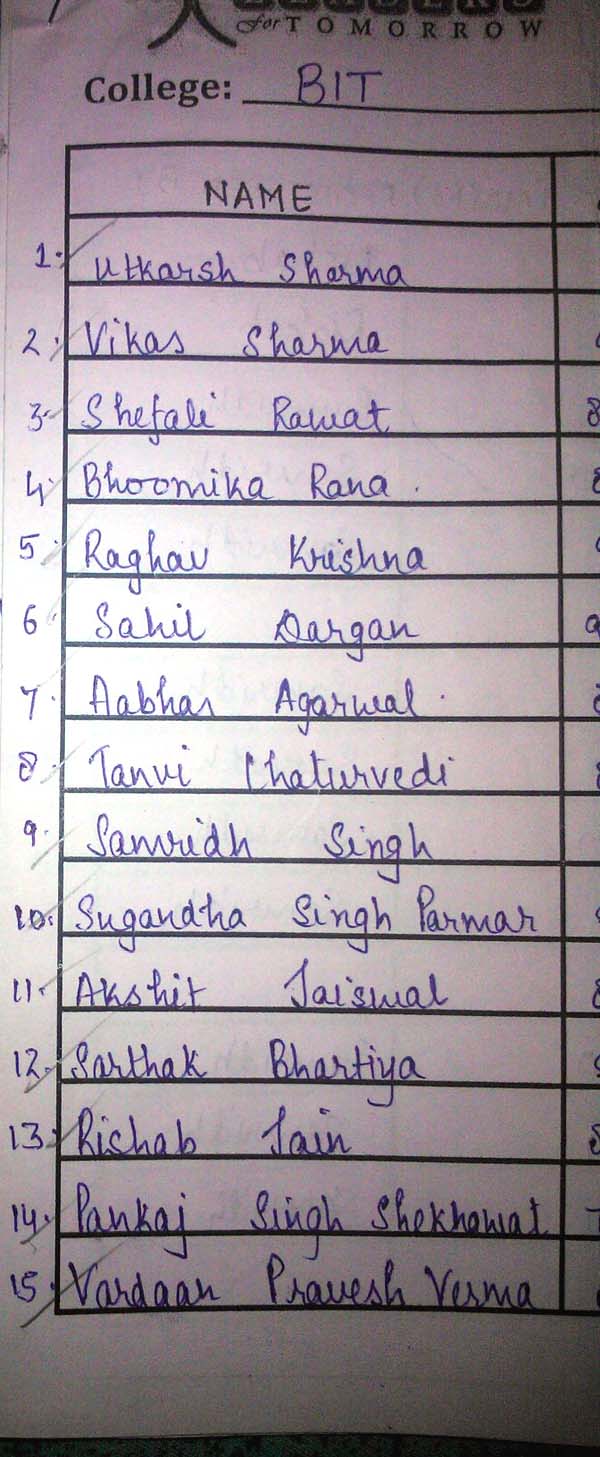 for TOMORROW
College: BIT
NAME
1. Utkarsh Sharma
2. Vikas Sharma
3. Shefali Rawat
4. Bhoomika Rana
5. Raghav Krishna
6. Sahil Dargan
7. Aabhas Agarwal
8. Tanvi Chaturvedi
9. Samridh Singh
10. Sugandha Singh Parmar
11. Akshit Jaiswal
12. Sarthak Bhartiya
13. Rishab Jain
14. Pankaj Singh Shekhawat
15. Vardaan Pravesh Verma